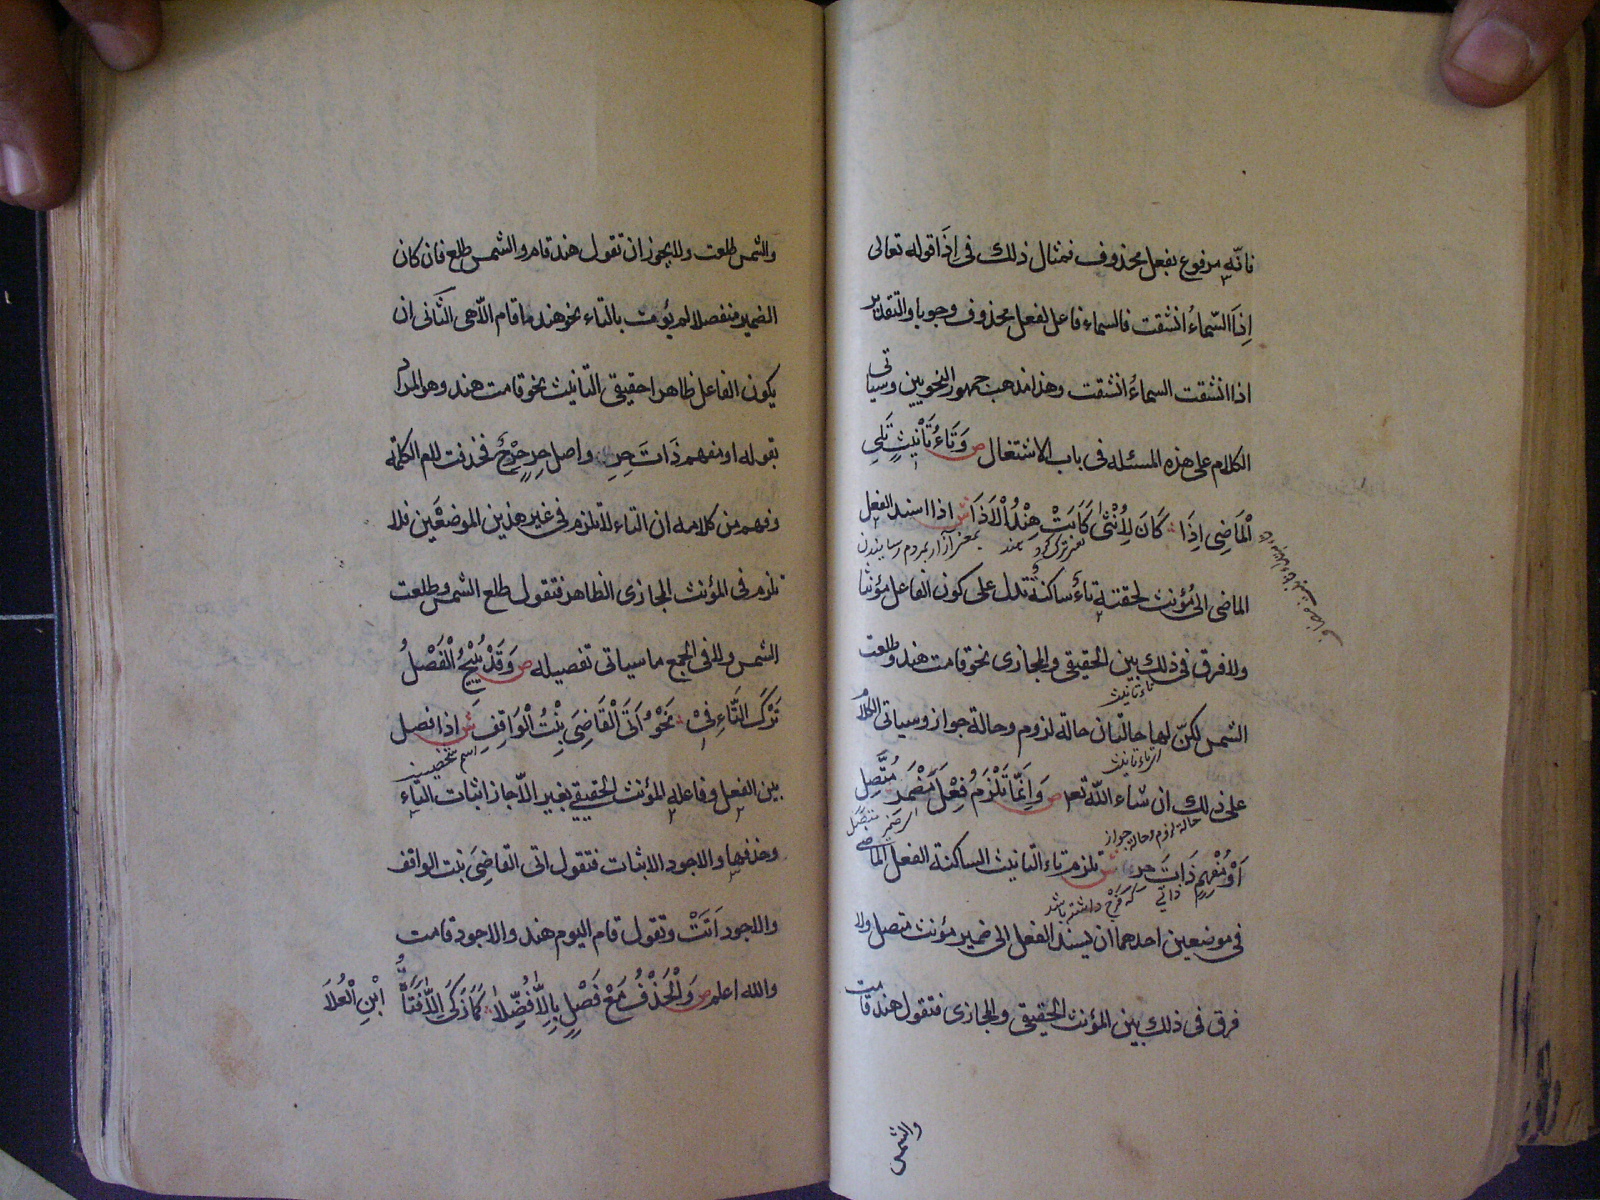 فانّه مرفوع بفعل محذوف فمثال ذلك فى اذا قوله تعالى
اِذَا السّماءُ انشقت فالسماء فاعل لفعل محذوف وجوبا والتقدير
اذا انشقت السماءُ انشقت وهذا مذهب جمهور النحويين وسياتى
الكلام على هذه المسئله فى باب الاشتغال ص وَتَاءُ تَأْنِيثٍ تَلِى
الْمَاضِى اِذَا كَانَ لِاُنْثىٰ كَاَبَتْ هِنْدُ الْاَذَا ش اذا اسند الفعل
بمعنى آزار بمردم رسانيدن
الماضى الى مؤنث لحقته تاءُ ساكنةُ تدل على كون الفاعل مؤنثا
ولا فرق فى ذلك بين الحقيقى والمجازى نحو قامت هند وطلعت
تاء تانيث
الشمس لكنّ لها حالتان حالة لزوم وحالة جواز وسياتى الكلام
اى تاء تانيث
على ذلك ان شاء اللّه تعا ص وَاِنَّمَا تَلْزَمُ فِعْلَ مُضْمَرِ مُتَّصِلِ
حالة لزوم وحالة جواز
اى ضمير متصل
اَوْ مُفْهِمٍ ذَاتَ حِرِ ش تلزم تاء التانيث الساكنة الفعل الماضى
كه فرج داشته باشد
فى موضعين احدهما ان يسند الفعل الى ضمير مؤنث متصل ولا
فرق فى ذلك بين المؤنث الحقيقى والمجازى فتقول هند قامت
والشمس
والشمس طلعت ولا يجوز ان تقول هند قام والشمس طلع فان كان
الضمير منفصلا لم يؤت بالتاء نحو هند ما قام الّا هى الثّانى ان
يكون الفاعل ظاهرا حقيقى التانيث نحو قامت هند وهو المراد
بقوله او مفهم ذَاتَ حِرِ واصل حِرٍ حِرْحٌ فحذفت لام الكلمة
وفهم من كلامه ان التاء لا تلزم فى غير هذين الموضعين فلا
تلزم فى المؤنث المجازى الظاهر فتقول طلع الشمس وطلعت
الشمس ولا فى الجمع ما سياتى تفصيله ص وَقَدْ يُبِيْحُ الْفَصْلُ
تَرْكَ التَّاءِ فِىْ نَحْوُ اَتَى الْقَاضِىَ بِنْتُ الْوَاقِفِ ش اذا فصل
بين الفعل وفاعله المؤنث الحقيقى بغير الّا جاز اثبات التاء
وحذفها والاجود الاثبات فتقول اتى القاضِىَ بنت الواقف
والاجود اَتَتْ وتقول قام اليوم هند والاجود قامت
والله اعلم ص وَالْحَذْفُ مَعْ فَصْلٍ بِاِلاَّ فُضِّلاَ كَمَا زَكَى اِلاَّ فَتَاةُ ابْنِ الْعُلَا